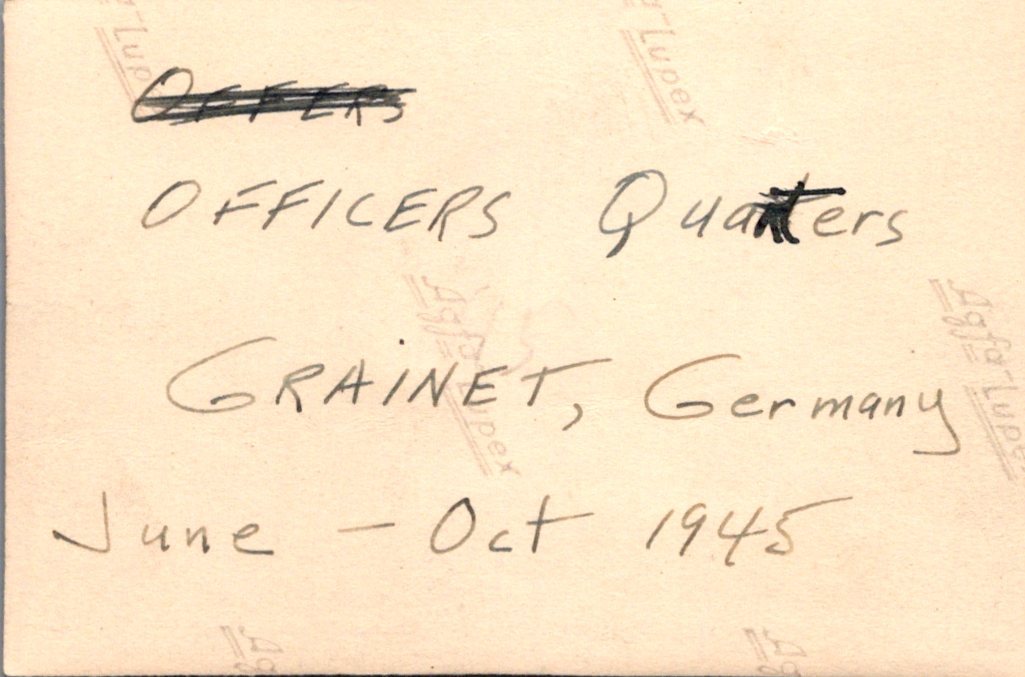 Offers
OFFICERS Quarters
GRAINET, Germany
June - Oct 1945
Agfa Lupex
Agfa Lupex
Agfa Lupex
Agfa Lupex